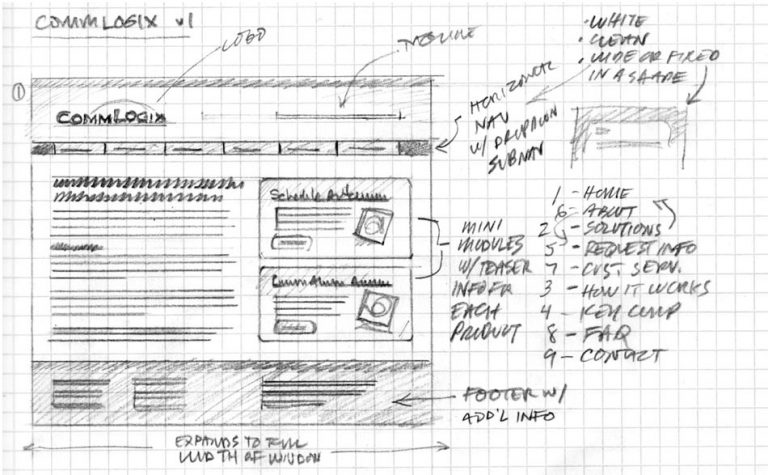 COMMLOGIX v1
LOGO
• WHITE
• CLEAN
• WIDE OR FIXED
IN A SHAPE
①
COMMLOGIX
HORIZONTAL
NAV
W/ DROPDOWN
SUBNAV
Schedule
MINI
MODULES
W/ TEASER
INFO FR
EACH
PRODUCT
1 - HOME
6 - ABOUT
2 - SOLUTIONS
5 - REQUEST INFO
7 - CUST. SERV.
3 - HOW IT WORKS
4 - KEY COMP
8 - FAQ
9 - CONTACT
FOOTER W/
ADD'L INFO
EXPANDS TO FULL
WIDTH OF WINDOW